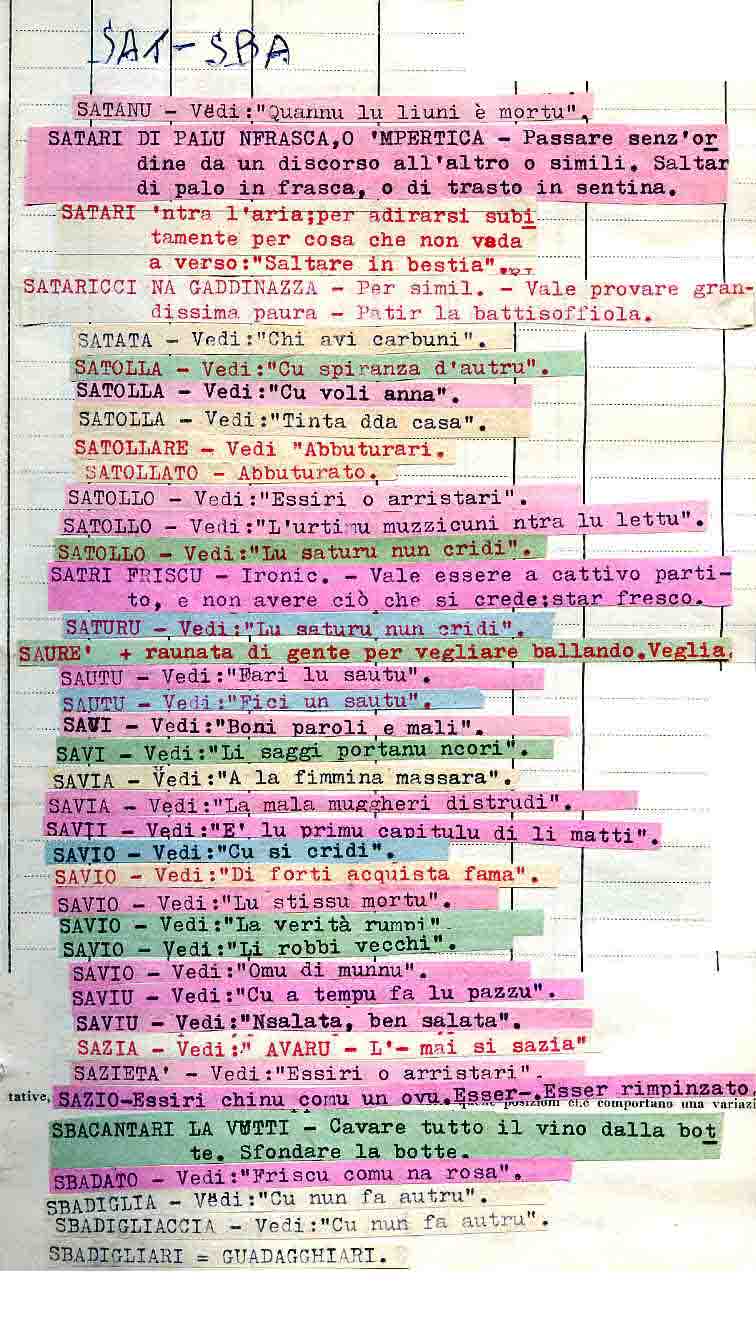 SAT-SBA
SATANU - Vedi:"Quannu lu liuni è mortu",
SATARI DI PALU NFRASCA,O 'MPERTICA - Passare senz'or
dine da un discorso all'altro o simili. Saltar
di palo in frasca, o di trasto in sentina.
SATARI 'ntra l'aria;per adirarsi subi
tamente per cosa che non vada
a verso:"Saltare in bestia".
SATARICCI NA GADDINAZZA - Per simil. - Vale provare gran-
dissima paura - Patir la battisoffiola.
SATATA - Vedi:"Chi avi carbuni".
SATOLLA - Vedi:"Cu spiranza d'autru".
SATOLLA - Vedi:"Cu voli anna".
SATOLLA - Vedi:"Tinta dda casa".
SATOLLARE - Vedi "Abbuturari.
SATOLLATO - Abbuturato.
SATOLLO - Vedi:"Essiri o arristari".
SATOLLO - Vedi:"L'urtimu muzzicuni ntra lu lettu".
SATOLLO - Vedi:"Lu saturu nun cridi".
SATRI FRISCU - Ironic. - Vale essere a cattivo parti-
to, e non avere ciò che si crede;star fresco.
SATURU - Vedi:"Lu saturu nun cridi".
SAURE' + raunata di gente per vegliare ballando.Veglia.
SAUTU - Vedi:"Fari lu sautu".
SAUTU - Vedi:"Fici un sautu".
SAVI - Vedi:"Boni paroli e mali".
SAVI - Vedi:"Li saggi portanu ncori".
SAVIA - Vedi:"A la fimmina massara".
SAVIA - Vedi:"La mala muggheri distrudi".
SAVII - Vedi:"E' lu primu capitulu di li matti".
SAVIO - Vedi:"Cu si cridi".
SAVIO - Vedi:"Di forti acquista fama".
SAVIO - Vedi:"Lu stissu mortu".
SAVIO - Vedi:"La verità rumpi".
SAVIO - Vedi:"Li robbi vecchi".
SAVIO - Vedi:"Omu di munnu".
SAVIU - Vedi:"Cu a tempu fa lu pazzu".
SAVIU - Vedi:"Nsalata, ben salata".
SAZIA - Vedi:" AVARU - L'- mai si sazia"
SAZIETA' - Vedi:"Essiri o arristari".
tative, SAZIO-Essiri chinu comu un ovu.Esser-.Esser rimpinzato.
posizioni che comportano una variazi
SBACANTARI LA VUTTI - Cavare tutto il vino dalla bot
te. Sfondare la botte.
SBADATO - Vedi:"Friscu comu na rosa".
SBADIGLIA - Vedi:"Cu nun fa autru".
SBADIGLIACCIA - Vedi:"Cu nun fa autru".
SBADIGLIARI = GUADAGGHIARI.